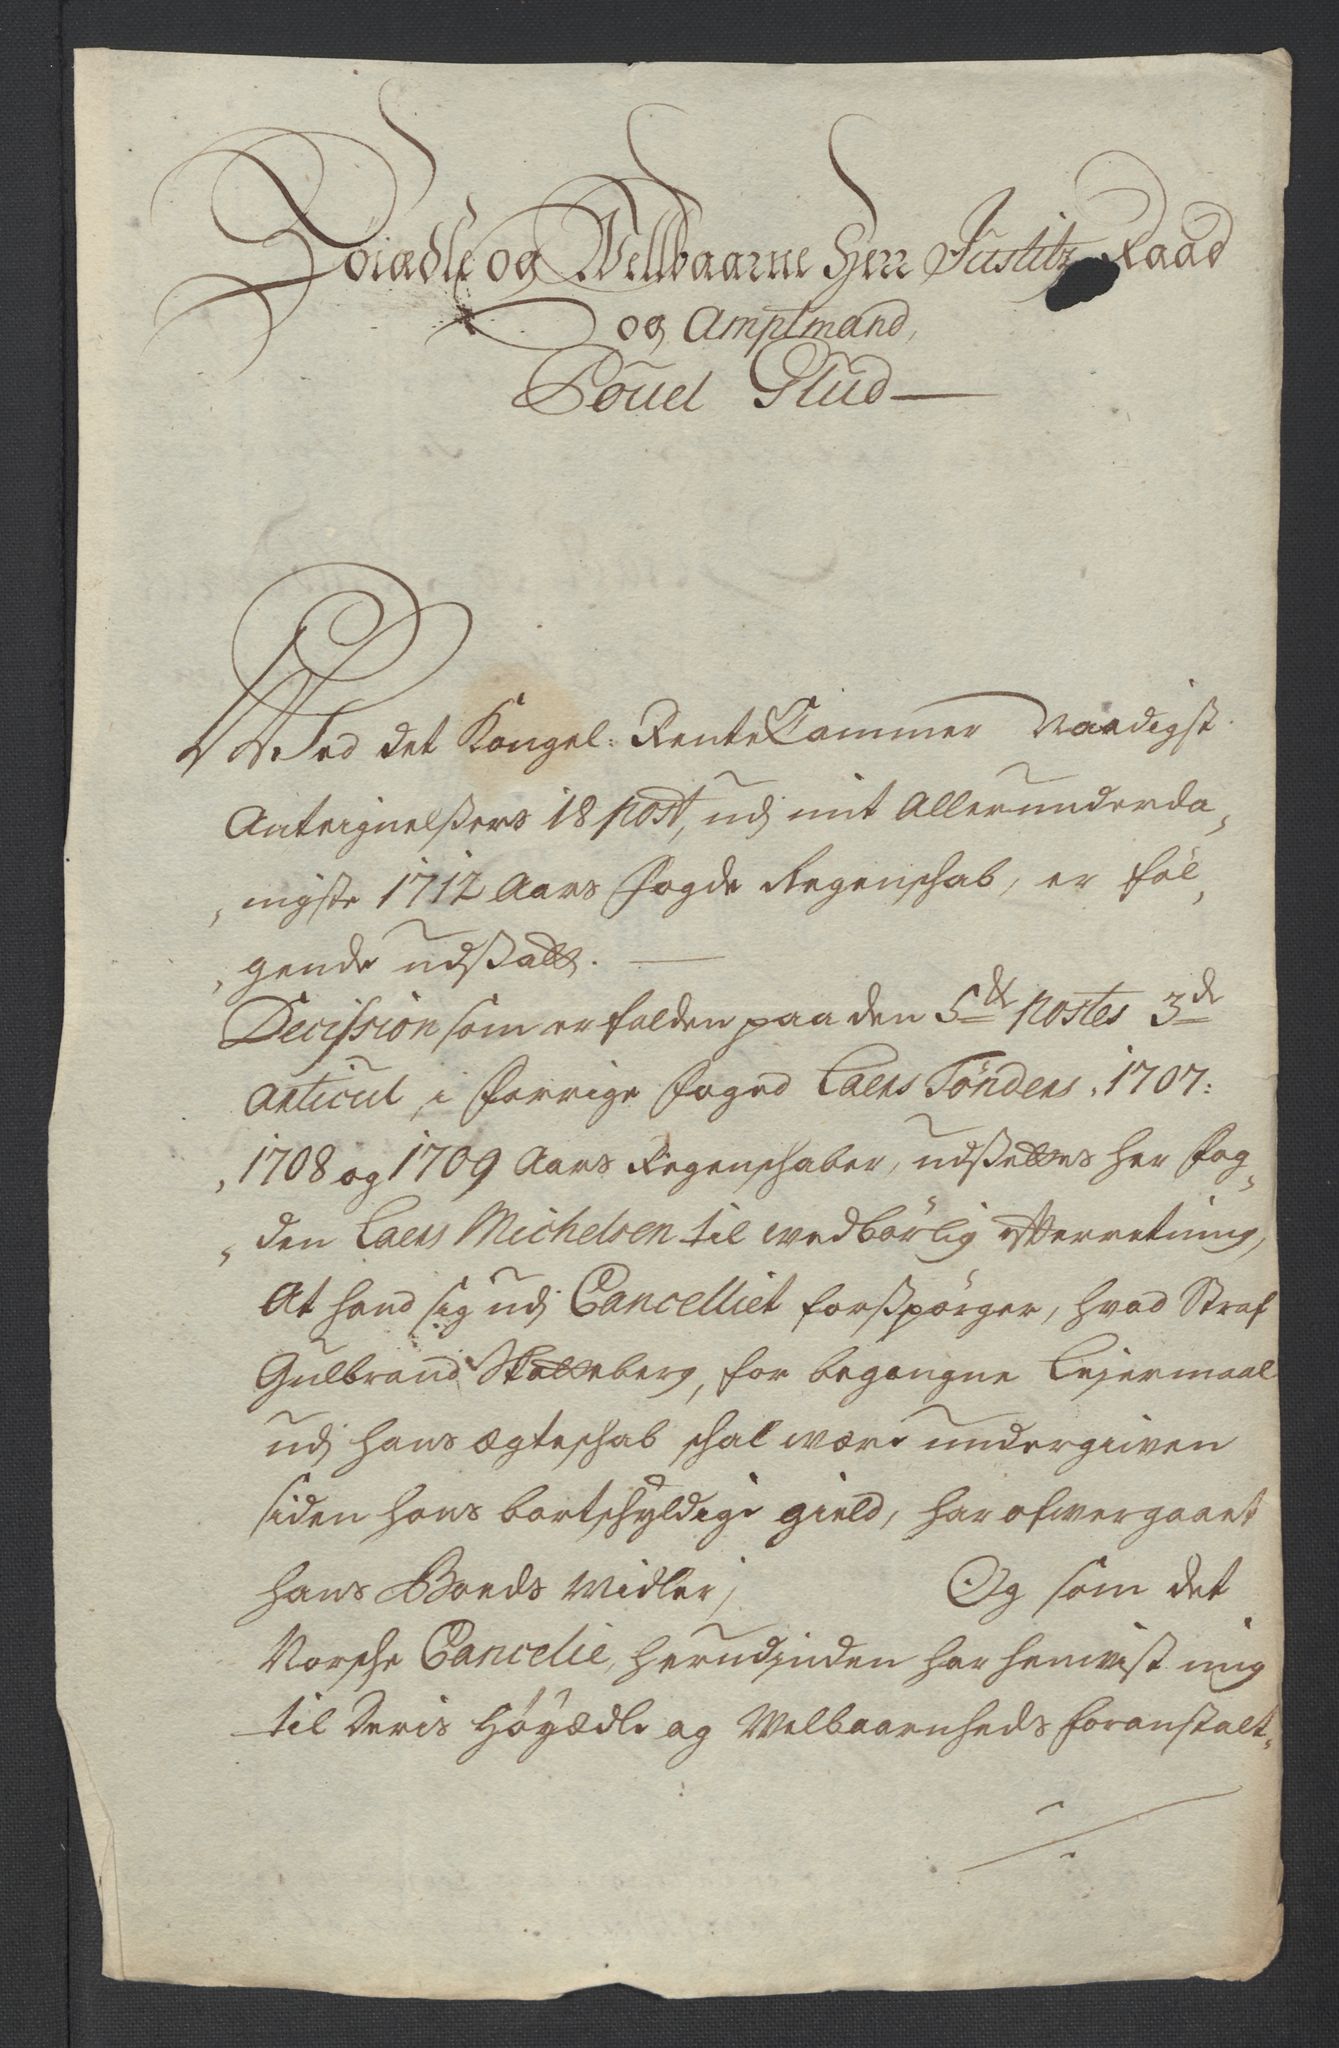 Höiædle og Wellbaarne Herr Justitz Raad
og Amptmand,
Pouel Glud
Ved det Kongel: RenteCammer Naadigst
Anteignelßers 18 Post, udj mit Allerunderda„
„nigste 1712 Aars Fogde Regenschab, er föl„
„gende udßatt.
Decission som er falden paa den 5te Postes 3de
Articul, i forrige foged Laers Tönders, 1707:
„1708 og 1709 Aars Regenschaber, udßettes her fog„
„den Laers Michelsen til wedbörlig efterretning,
At hand sig udj Cancelliet forßpörger, hvad Straf
Gulbrand Skatteberg, for begangne Lejermaal
udj hans ægteschab schal være undergiven
siden hans bortschyldige gield, har ofvergaaet
hans Boeds Midler; Og som det
Norsche Cancelie, herudjinden har henvist mig
til Deris Höyædle og Welbaarenheds foranstalt„